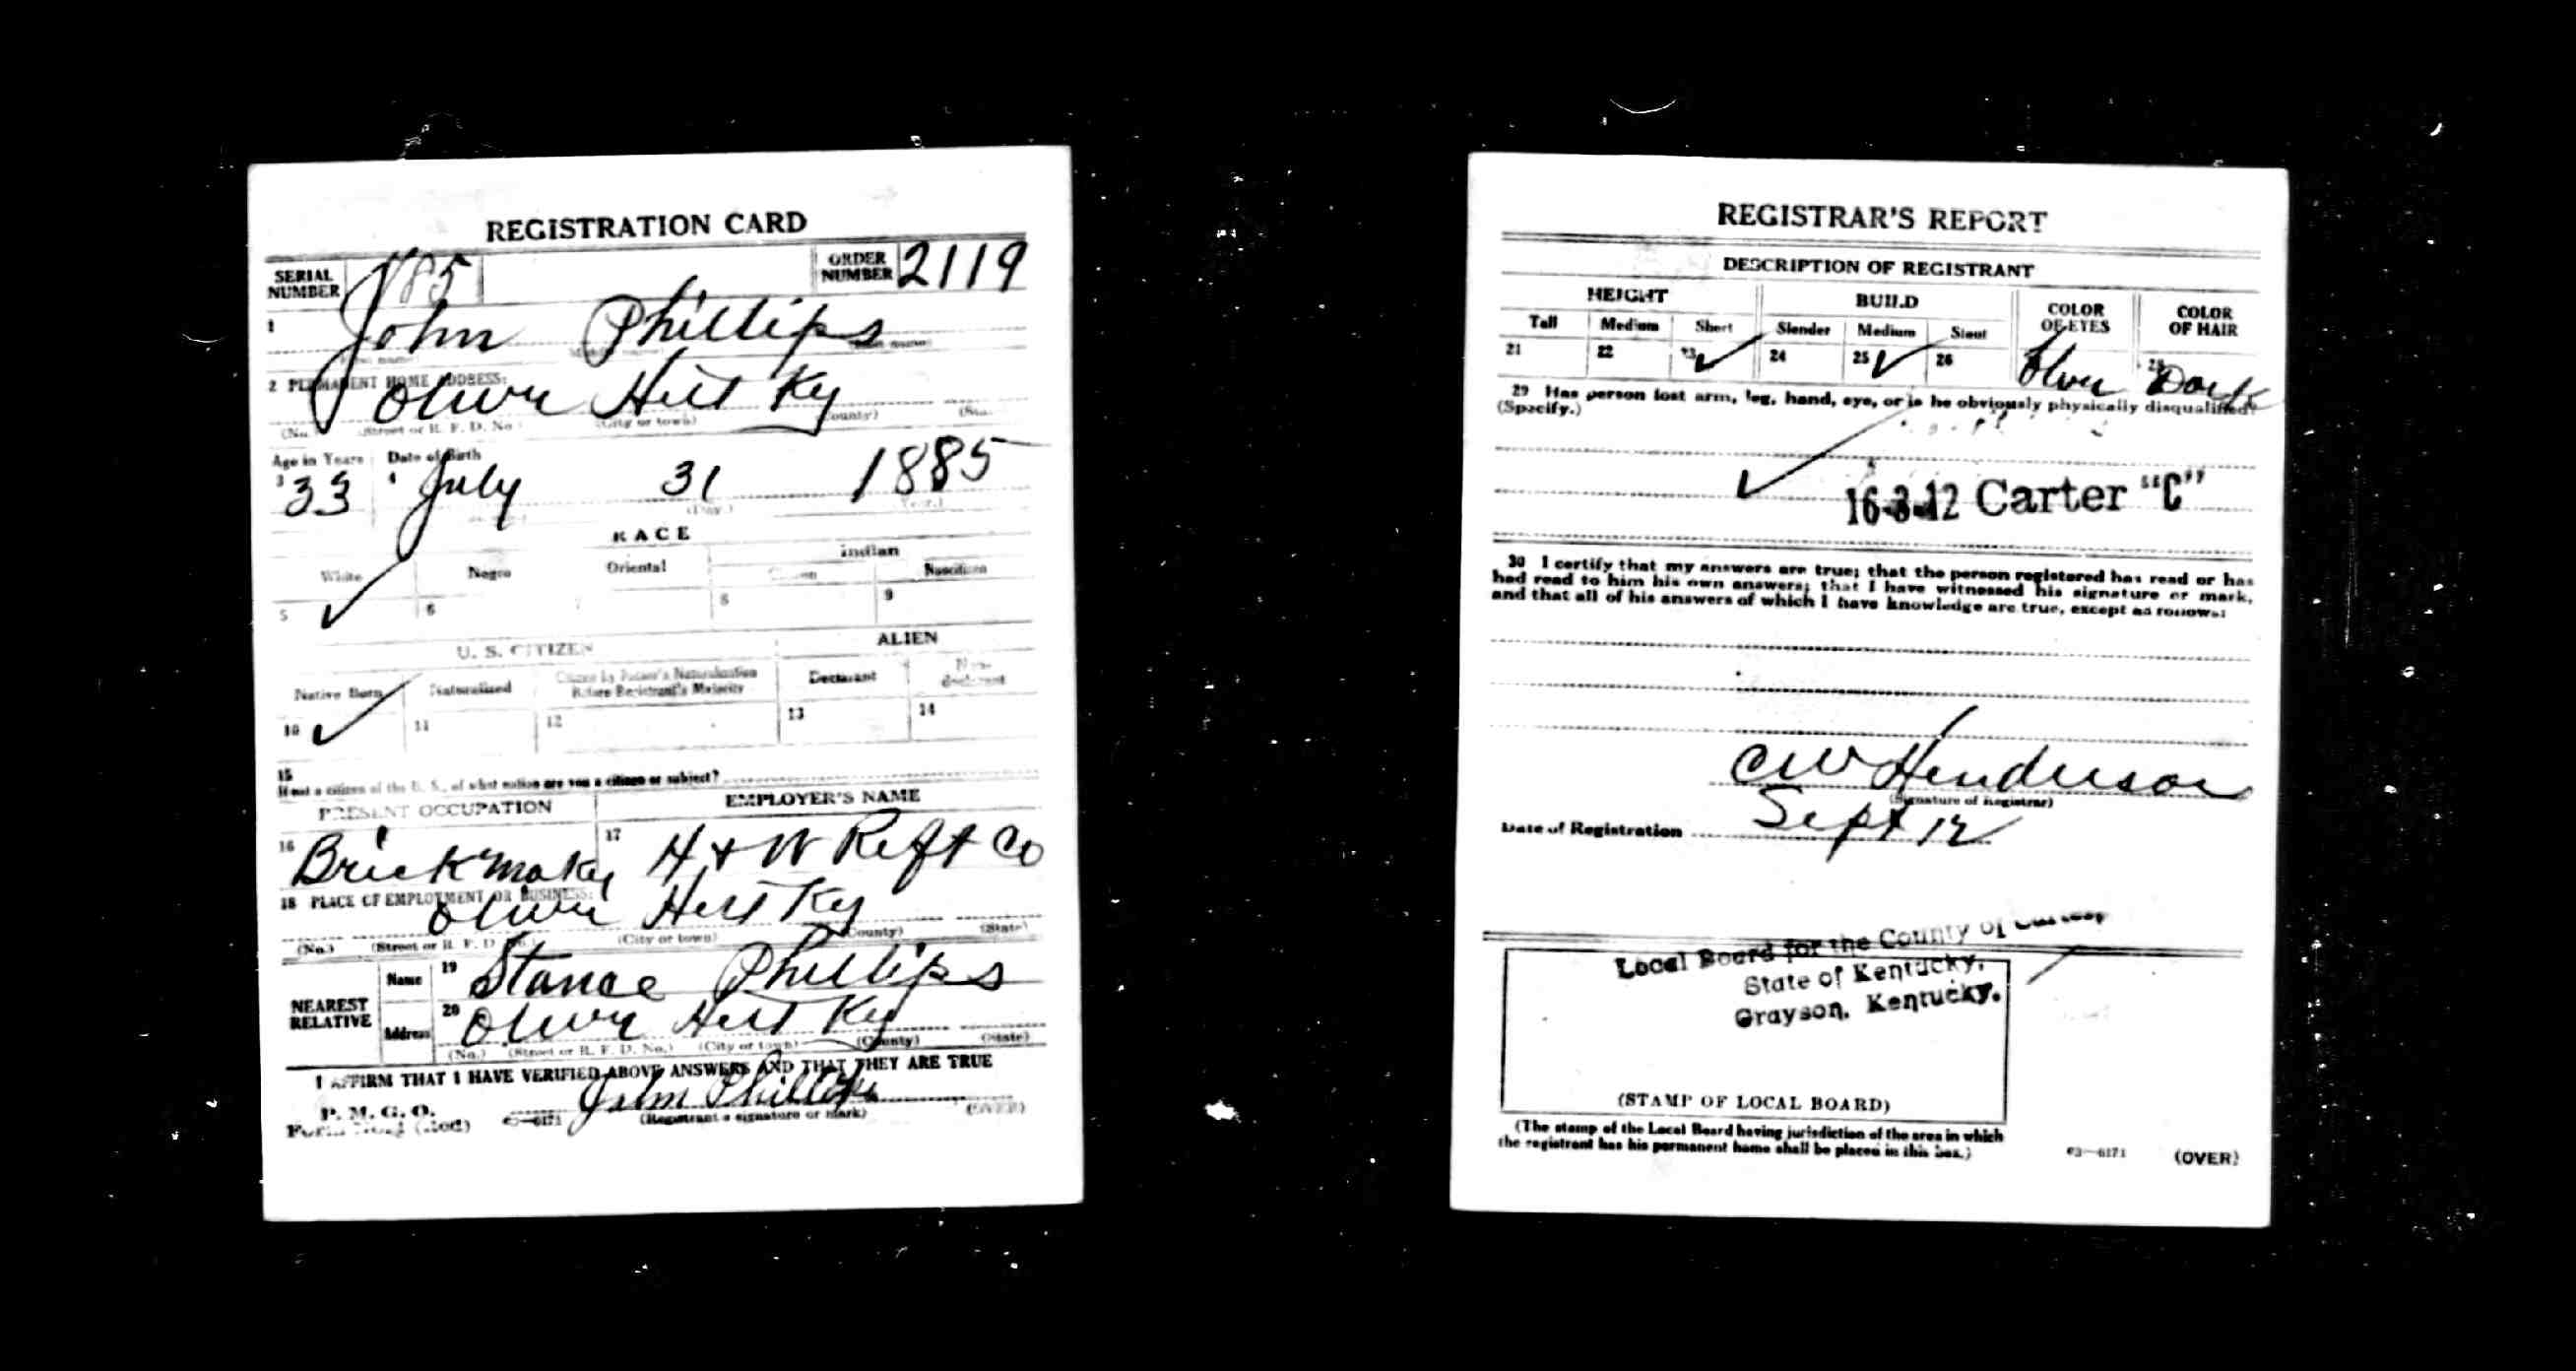 REGISTRATION CARD
SERIAL NUMBER 185 ORDER NUMBER 2119
1 John Phillips
2 PERMANENT HOME ADDRESS:
Olive Hill Ky
(No.) (Street or R. F. D. No.) (City or town) (County)
Age in Years Date of Birth
3 33 4 July 31 1885
(Day.) (Year.)
RACE
White Negro Oriental Indian
Citizen Noncitizen
5 ✓ 6 7 8 9
U. S. CITIZEN ALIEN
Native Born Naturalized Citizen by Father's Naturalization Before Registrant's Majority Declarant Non-declarant
10 ✓ 11 12 13 14
15
If not a citizen of the U. S., of what nation are you a citizen or subject?
PRESENT OCCUPATION EMPLOYER'S NAME
16 Brick maker 17 H + W Reft Co
18 PLACE OF EMPLOYMENT OR BUSINESS:
Olive Hill Ky
(No.) (Street or R. F. D. No.) (City or town) (County) (State)
NEAREST RELATIVE
Name 19 Stance Phillips
Address 20 Olive Hill Ky
(No.) (Street or R. F. D. No.) (City or town) (County) (State)
I AFFIRM THAT I HAVE VERIFIED ABOVE ANSWERS AND THAT THEY ARE TRUE
P. M. G. O.
Form (Red) John Phillips
(Registrant's signature or mark) (OVER)
REGISTRAR'S REPORT
DESCRIPTION OF REGISTRANT
HEIGHT BUILD COLOR OF EYES COLOR OF HAIR
Tall Medium Short Slender Medium Stout
21 22 23 ✓ 24 25 ✓ 26 28 Dark
29 Has person lost arm, leg, hand, eye, or is he obviously physically disqualified?
(Specify.)
✓
16-3-12 Carter "C"
30 I certify that my answers are true; that the person registered has read or has
had read to him his own answers; that I have witnessed his signature or mark,
and that all of his answers of which I have knowledge are true, except as follows:
C W Henderson
(Signature of Registrar)
Date of Registration Sept 12
Local Board for the County of Carter,
State of Kentucky,
Grayson, Kentucky.
(STAMP OF LOCAL BOARD)
(The stamp of the Local Board having jurisdiction of the area in which
the registrant has his permanent home shall be placed in this box.)
03—6171 (OVER)